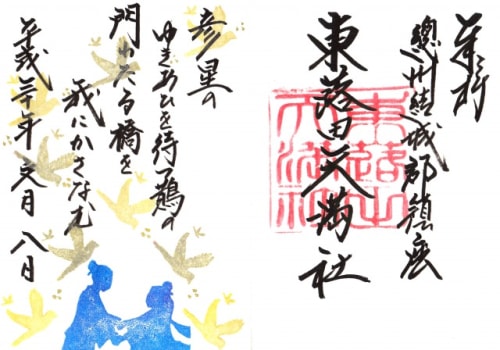 奉拝
總州結城郡鎮座
東蕗田天満社
東蕗田
天満社
彦星の
ゆきあひを待つ鵲の
門わたる橋を
我にかさなむ
平成三十年 文月 八日